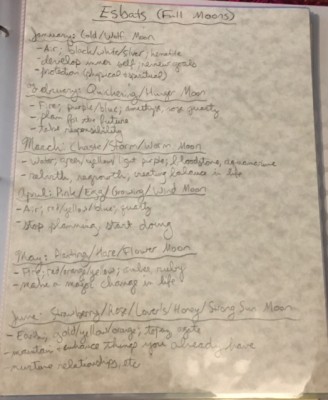 Esbats (Full Moons)
January: Cold/Wolf Moon
- Air; black/white/silver; hematite
- develop inner self, review goals
- Protection (physical + spiritual)
February: Quickening/Hunger Moon
- Fire; purple/blue; amethyst, rose quartz
- plan for the future
- take responsibility
March: Chaste/Storm/Worm Moon
- Water; green, yellow, light purple; bloodstone, aquamarine
- rebirth, regrowth, creating balance in life
April: Pink/Egg/Growing/Wind Moon
- Air; red/yellow/blue; quartz
- stop planning, start doing
May: /Hare/Flower Moon
- Fire; red/orange/yellow; amber, ruby
- make a major change in life
June: Strawberry/Rose/Lover's/Honey/Strong Sun Moon
- Earth; gold/yellow/orange; topaz, agate
- maintain + enhance things you already have
nurture relationships, etc